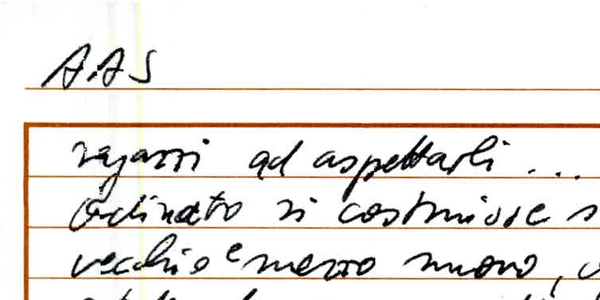 A.A.S
ragazzi ad aspettarli ...
si costruisce s
vecchio e mezzo nuovo,